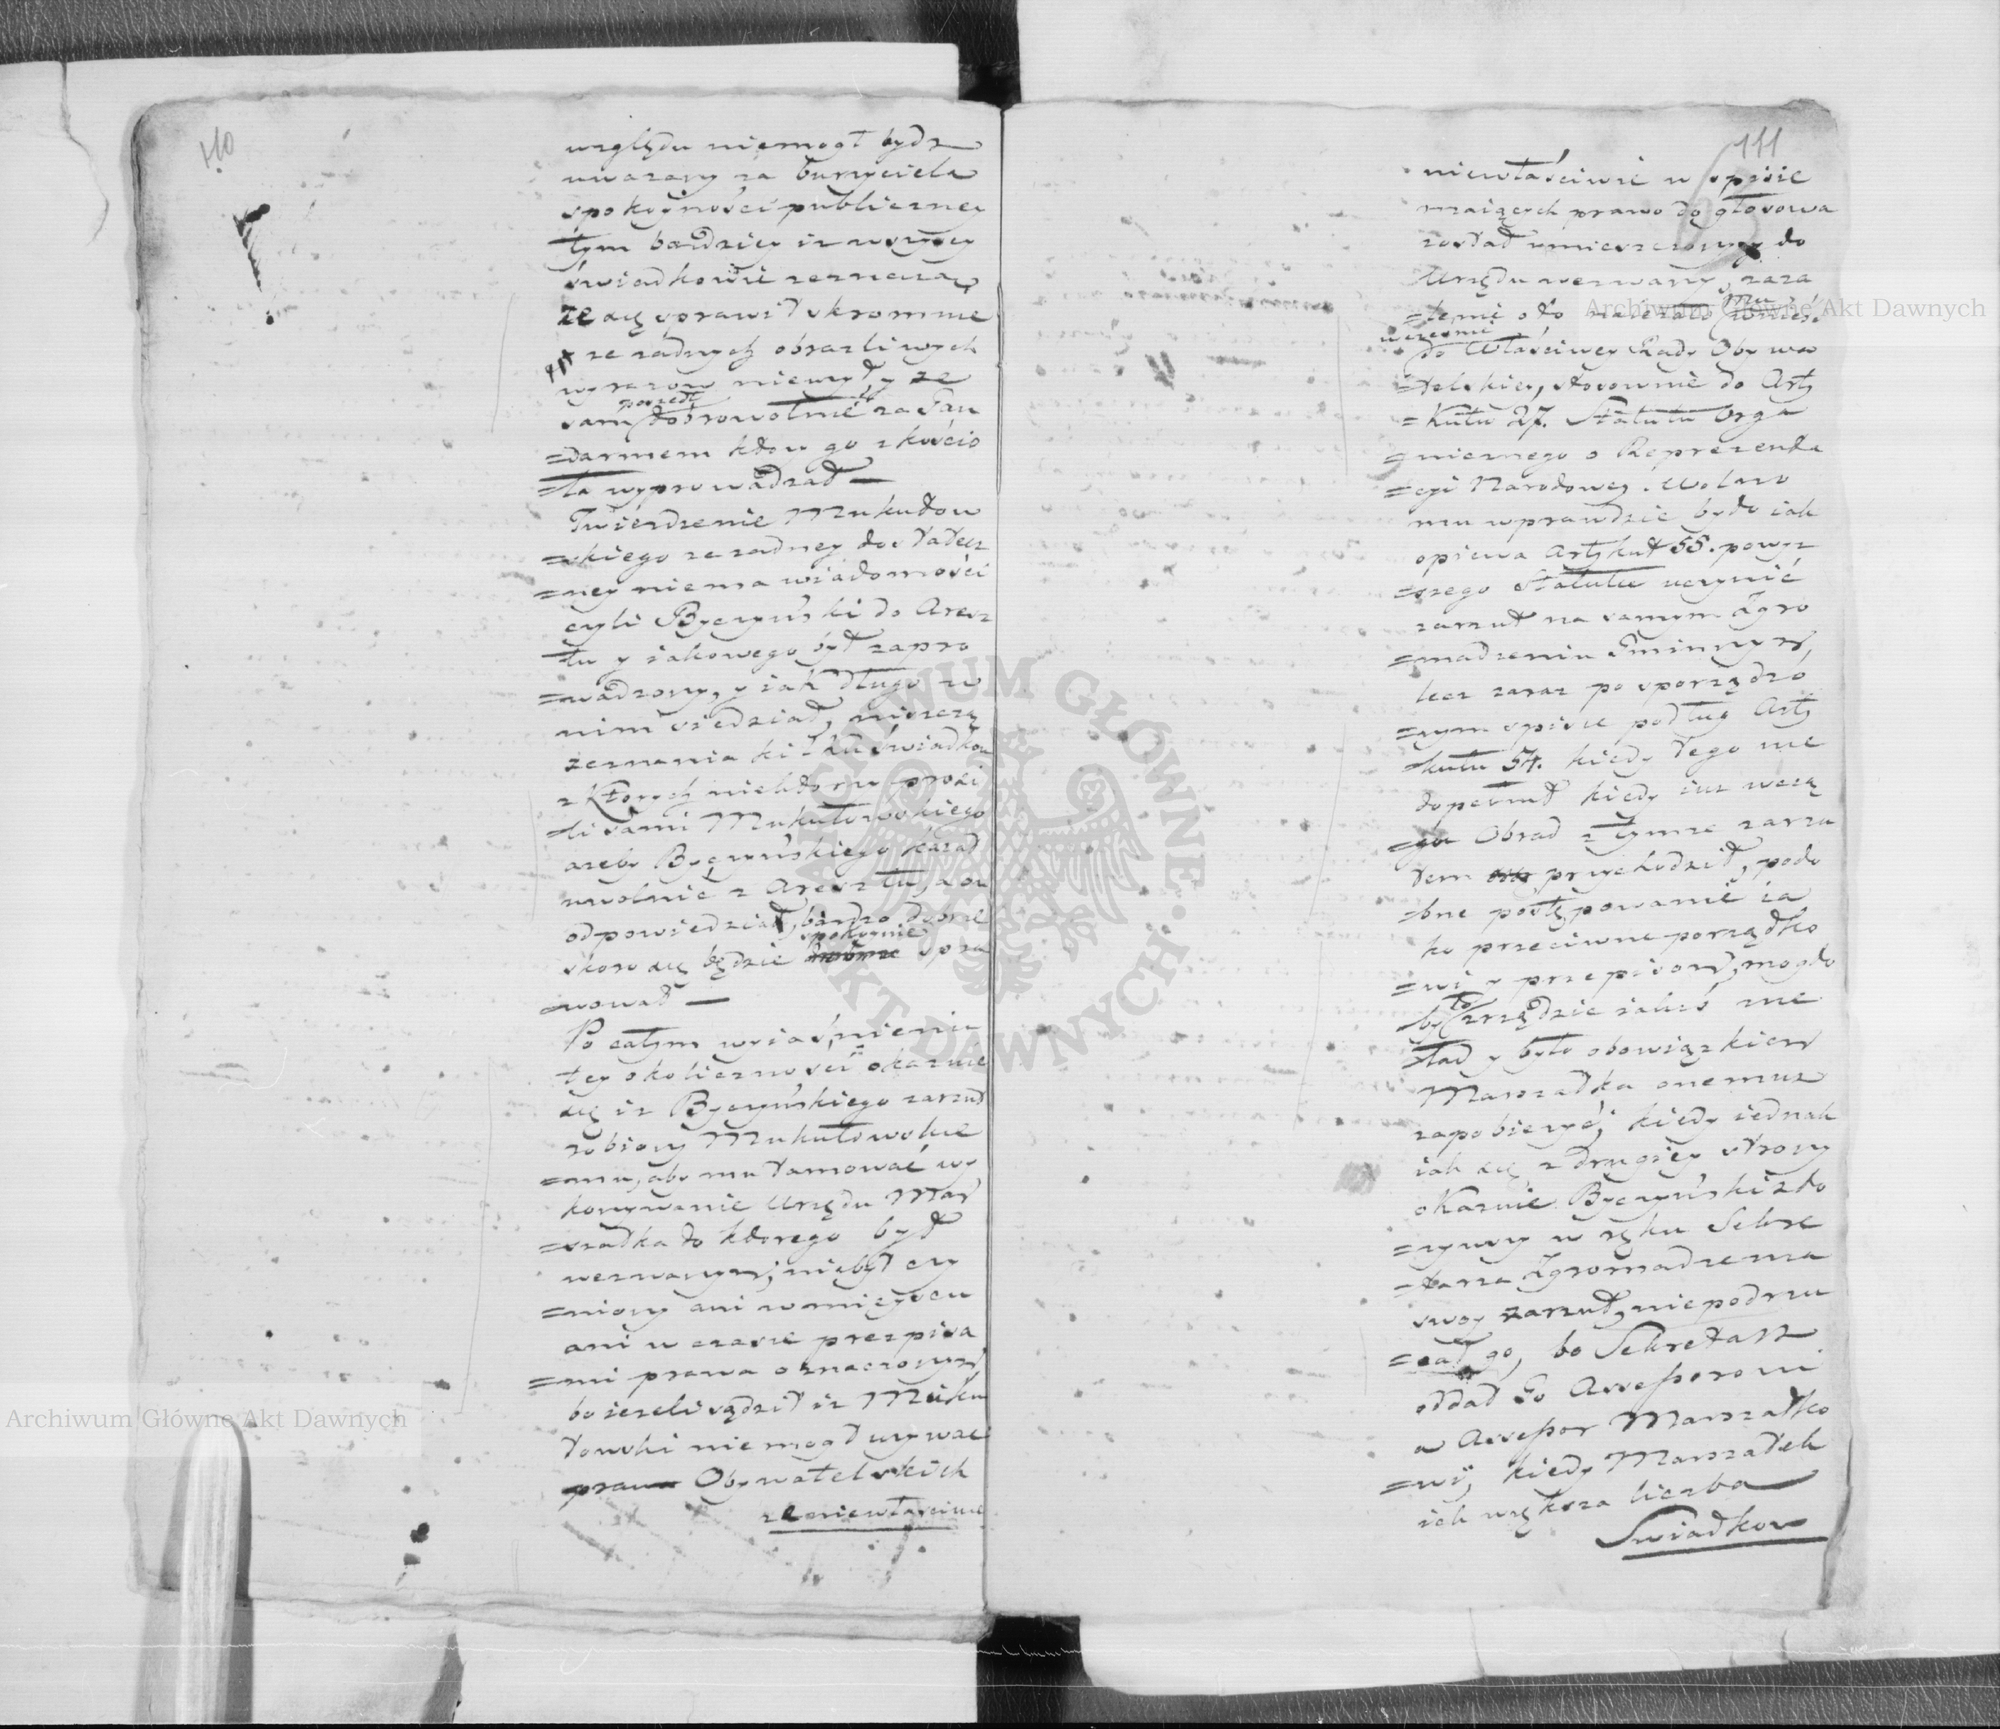 110
względu niemogł bydz
uwazany za burzyciela
spokoyności publiczney
tym bardziey iz wszyscy
świadkowie zeznaią,
ze się sprawił skromnie
ze zadnych obrazliwych
wyrazow niewyd y ze
poszedł
sam dobrowolnie za Żan
=darmem ktory go z kościo
=ła wyprowadzał —
Twierdzenie Mukułow
=skiego ze zadney dostatecz
=ney niema wiadomości
czyli Byczyński do Aresz
tu y iakowego był zapro
=wadzony, y iak długo w
nim siedział, niszczą
zeznania kilku świadkow
z Ktorych niektorzy prosi
=li sami Mukułowskiego
azeby Byczyńskiego kazał
uwolnić z Aresztu, a on
odpowiedział, bardzo dobrze
spokoynie
skoro się będzie spra
=wował —
Po całym wyiaśnieniu
tey okoliczności okazuie
się iz Byczyńskiego zarzut
robiony Mukułowskie
=mu, aby mu tamować wy
konywanie Urzędu Mar
=szałka do ktorego był
wezwanym, niebył czy
=niony ani w mieyscu
ani w czasie przepisa
=mi prawa oznaczonym
bo iezeli sądził iz Muku
łowski niemogł uzywać
praw Obywatelskich
ze niewłasciwie
111
niewłaściwie w spisie
maiących prawo do głosowa
został umieszczonym do
Urzędu wezwany, zaza
=lenie oto należało mu wnieść
wcześnie
do Właściwey Rady Obywa
=telskiey, stosownie do Arty
=kułu 27. Statutu Orga
=nicznego o Reprezenta
=cyi Narodowey. Wolno
mu wprawdzie było iak
opiewa Artykuł 55. powyz
=szego Statutu uczynić
zarzut na samym Zgro
=madzeniu Gminnym,
lecz zaraz po sporządzo
=nym spisie podług Arty
=kułu 54. kiedy tego nie
dopełnił kiedy iuz w ciągu
Obrad z tymze zarzu
tem przychodził, podo
=bne postępowanie ia
ko przeciwne porządko
=wi y przepisom, mogło
to
by zrządzić iakiś nie
ład y było obowiązkiem
Marszałka onemuz
zapobiezyć, kiedy iednak
iak się z drugiey strony
okazuie Byczyński zło
=zywszy w ręku Sekre
=tarza Zgromadzenia
swoy zarzut, niepodrzu
=cał go, bo Sekretarz
oddał Go Assessorowi
a Assessor Marszałko
=wi, kiedy Marszałek
ich większa liczba
Swiadkow
Archiwum Główne Akt Dawnych
Archiwum Główne Akt Dawnych
ARCHIWUM GŁÓWNE AKT DAWNYCH